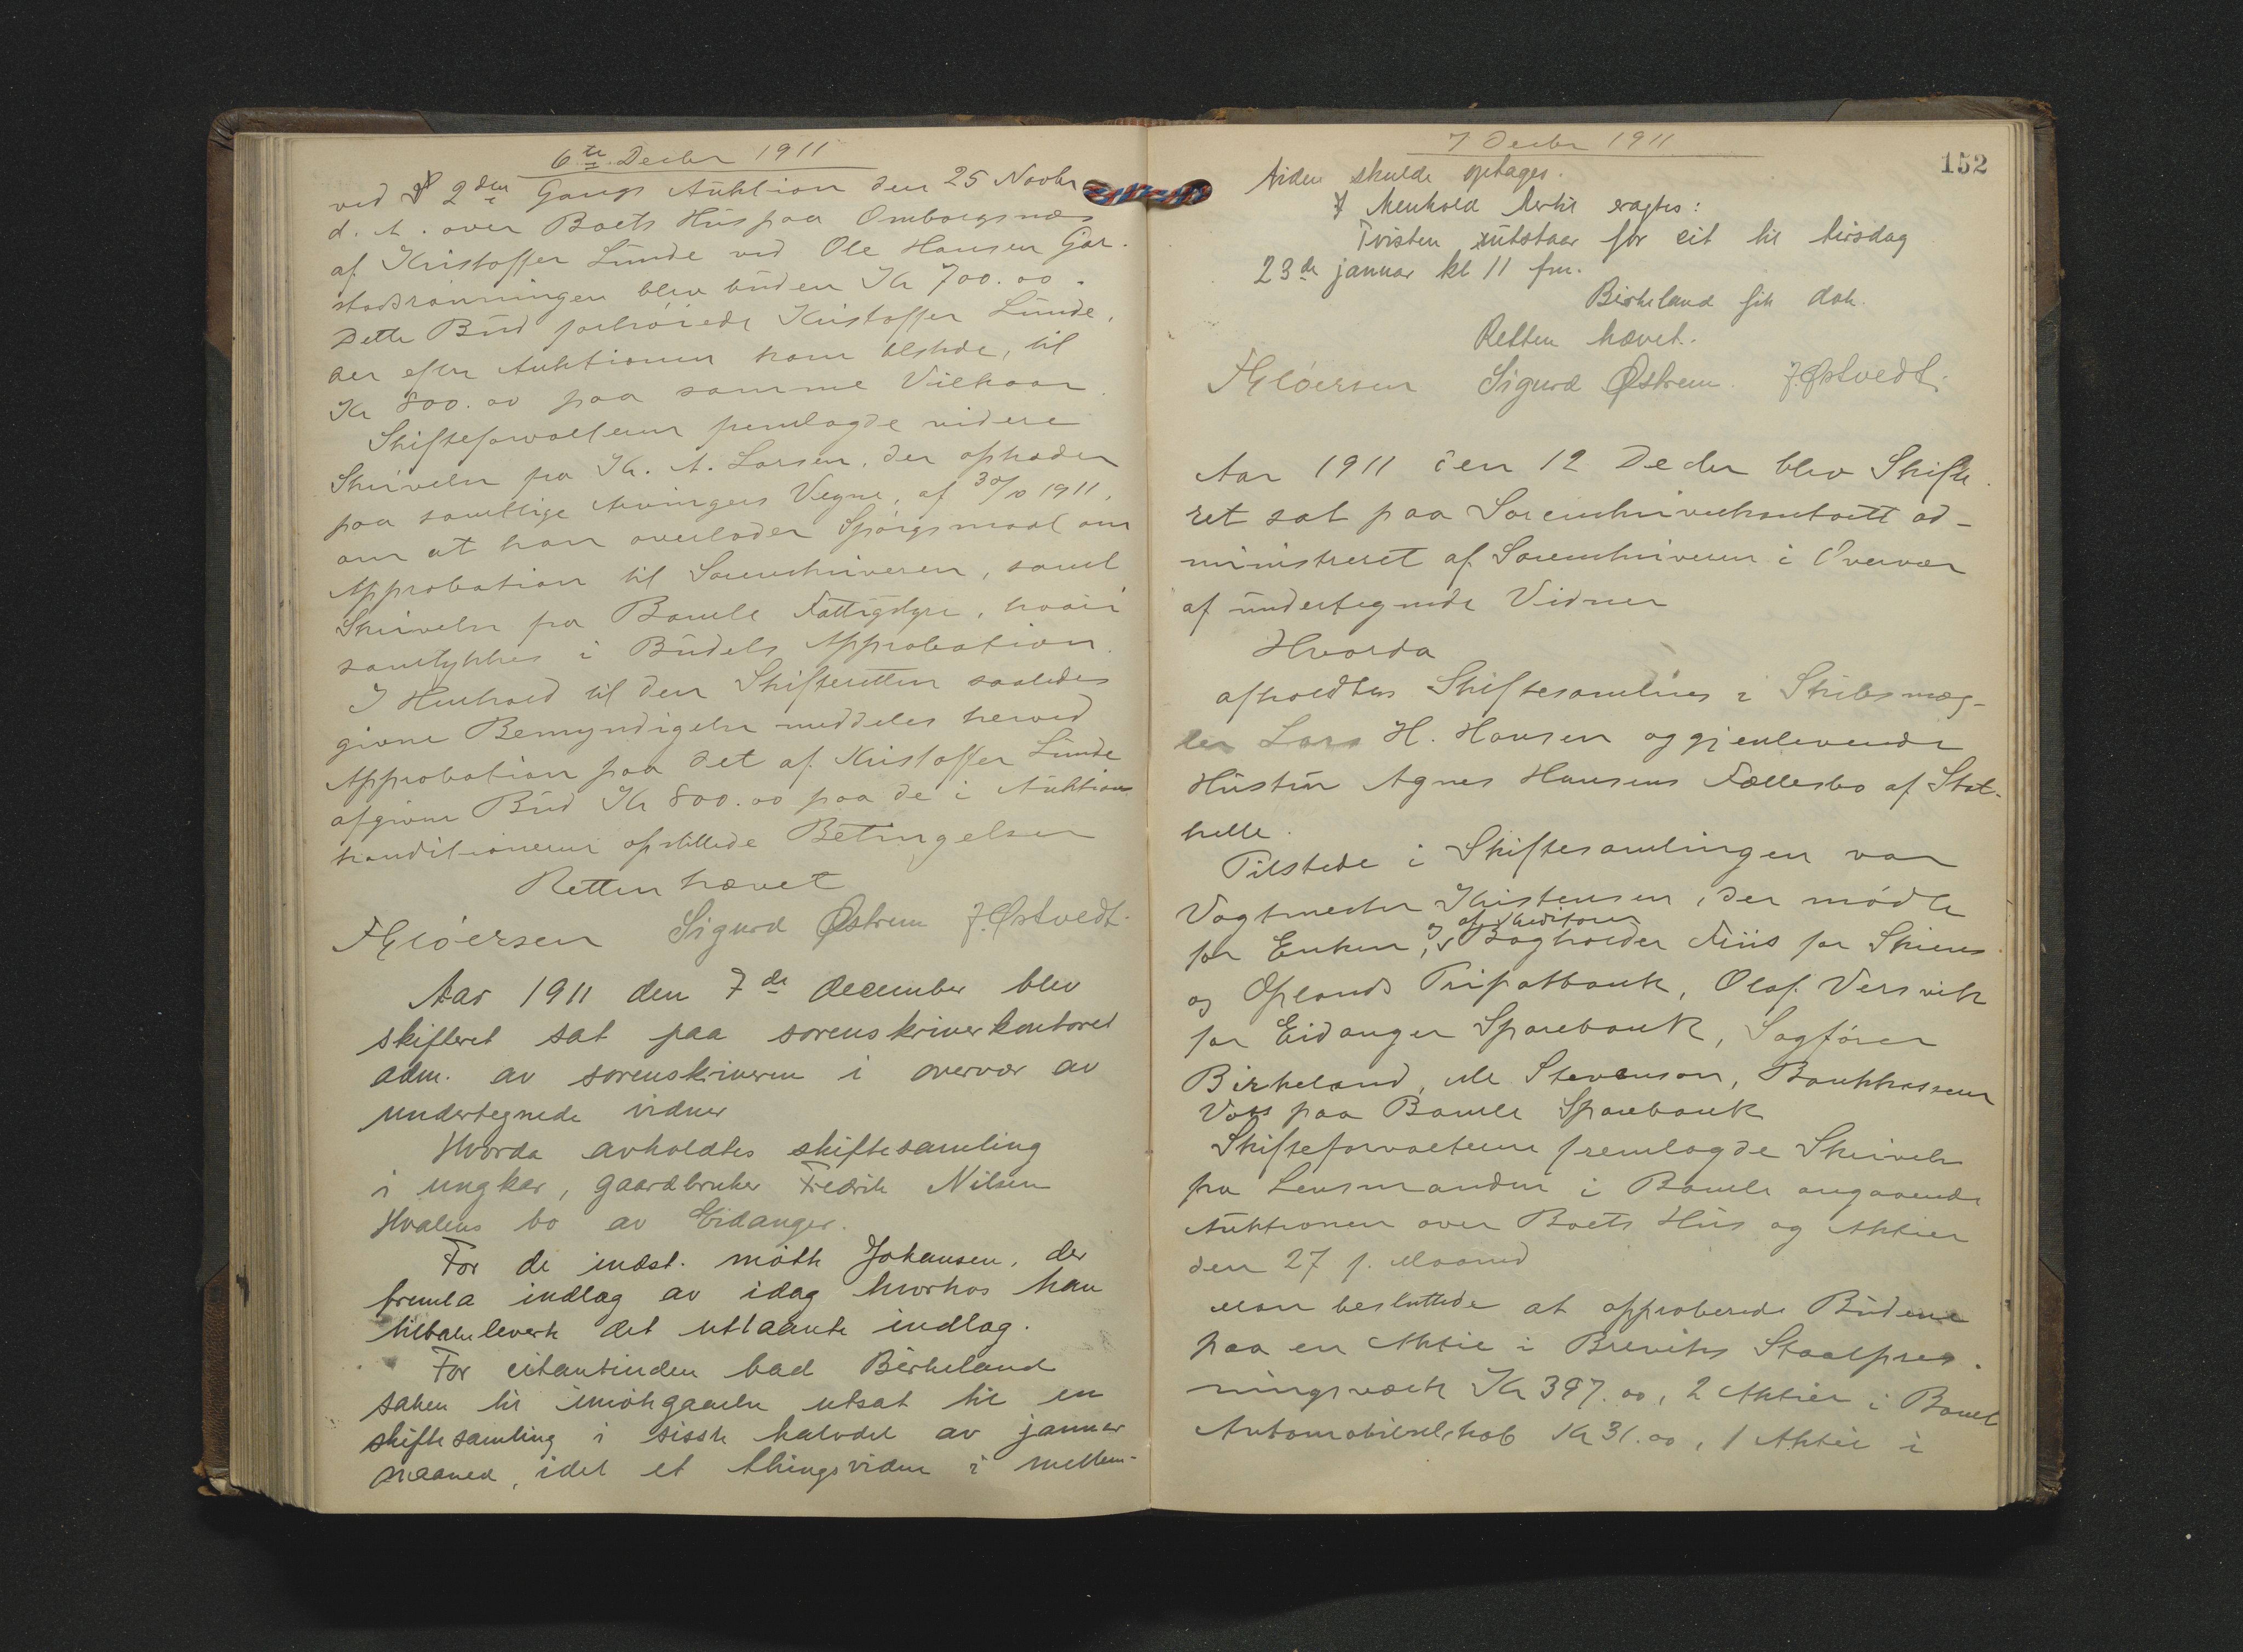 6te Decbr 1911
ved 2den Gangs Auktion den 25 Novbr
d. A. over Boets Hus paa Omborgsnæs
af Kristoffer Lunde ved Ole Hansen Gar-
stadrønningen blev buden Kr 700.00.
Dette Bud forhøiede Kristoffer Lunde,
der efter Auktionen kom tilstede, til
Kr 800.00 paa samme Vilkaar.
Skifteforvalteren fremlagde videre
Skrivelse fra Kr. A. Larsen, der optræder
paa samtlige Arvingers Vegne, af 30/10 1911,
om at han overlader Spørgsmaal om
Approbation til Sorenskriveren, samt
Skrivelse fra Bamle Fattigstyre, hvori
samtykkes i Budets Approbation.
I Henhold til den Skifteretten saaledes
givne Bemyndigelse meddeles herved
Approbation paa det af Kristoffer Lunde
afgivne Bud Kr 800.00 paa de i Auktions-
konditionerne opstillede Betingelser
Retten hævet
Sigurd Østrem J. Østvedt.
Aar 1911 den 7de december blev
skifteret sat paa sorenskriverkontoret
adm. av sorenskriveren i overvær av
undertegnede vidner
Hvorda avholdtes skiftesamling
i ungkar, gaardbruker Fredrik Nilsen
Hvalens bo av Eidanger.
For de indst. møtte Johansen, der
fremla indlæg av idag hvorhos han
tilbakeleverte det utlaante indlæg.
For citantinden bad Birkeland
saken til imøtegaaelse utsat til en
skiftesamling i sisste halvdel av januar
maaned, idet et thingsvidne i mellem-
7 Decbr 1911
152
tiden skulde optages.
I henhold hertil eragtes:
Tvisten utstaar for cit til tirsdag
23de januar kl 11 fm.
Birkeland fik dok.
Retten hævet.
Sigurd Østrem J. Østvedt.
Aar 1911 den 12 Decbr blev Skifte-
ret sat paa Sorenskriverkontoret ad-
ministreret af Sorenskriveren i Overvær
af undertegnede Vidner
Hvorda
afholdtes Skiftesamling i Skibsmæg-
ler Lars H. Hansen og gjenlevende
Hustru Agnes Hansens Fællesbo af Stat-
helle.
Tilstede i Skiftesamlingen var
Vagtmester Kristensen, der mødte
og af Kreditorer
for Enken, Bogholder Friis for Skiens
og Oplands Privatbank, Olaf Versvik
for Eidanger Sparebank, Sagfører
Birkeland, M. Stevenson, Bankkasserer
Voss paa Bamle Sparebank
Skifteforvalteren fremlagde Skrivelse
fra Lensmanden i Bamle angaaende
Auktionen over Boets Hus og Aktier
den 27 f. Maaned
Man besluttede at approberede Budene
paa en Aktie i Breviks Staalpres-
ningsværk Kr 397.00, 2 Aktier i Bamle
Automobilselskab Kr 31.00, 1 Aktie i